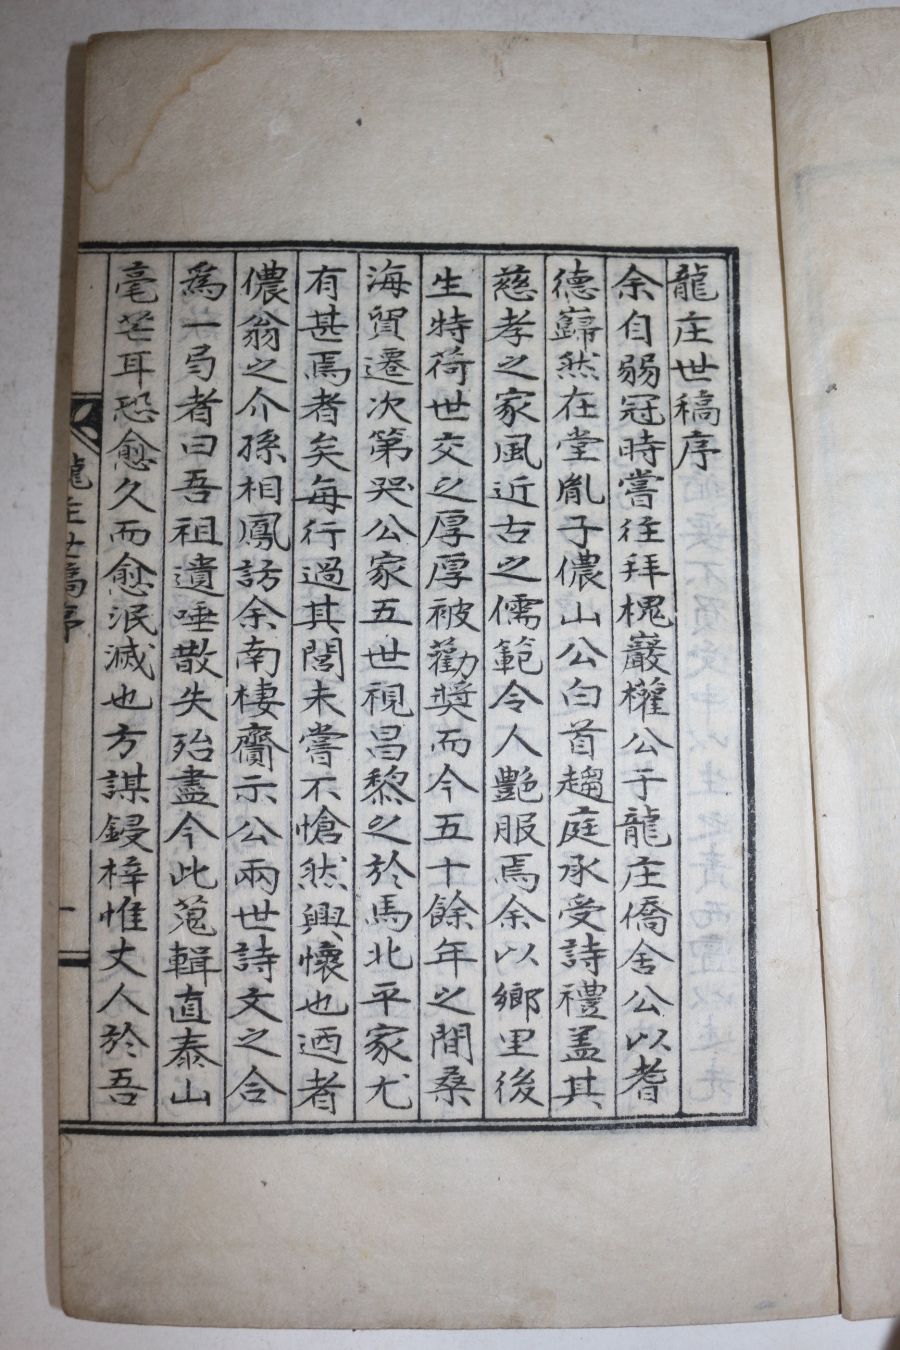 龍庄世稿序
余自弱冠時嘗往拜槐巖權公于龍庄僑舍公以耆
德巋然在堂胤子儂山公白首趨庭承受詩禮盖其
慈孝之家風近古之儒範令人艶服焉余以鄉里後
生特荷世交之厚厚被勸奬而今五十餘年之間桑
海貿遷次第哭公家五世視昌黎之於馬北平家尤
有甚焉者矣每行過其閭未嘗不愴然興懷也迺者
儂翁之介孫相鳳訪余南棲齋示公兩世詩文之合
爲一局者曰吾祖遺唾散失殆盡今此蒐輯直泰山
毫芒耳恐愈久而愈泯滅也方謀鋟梓惟丈人於吾
龍庄世稿序
一